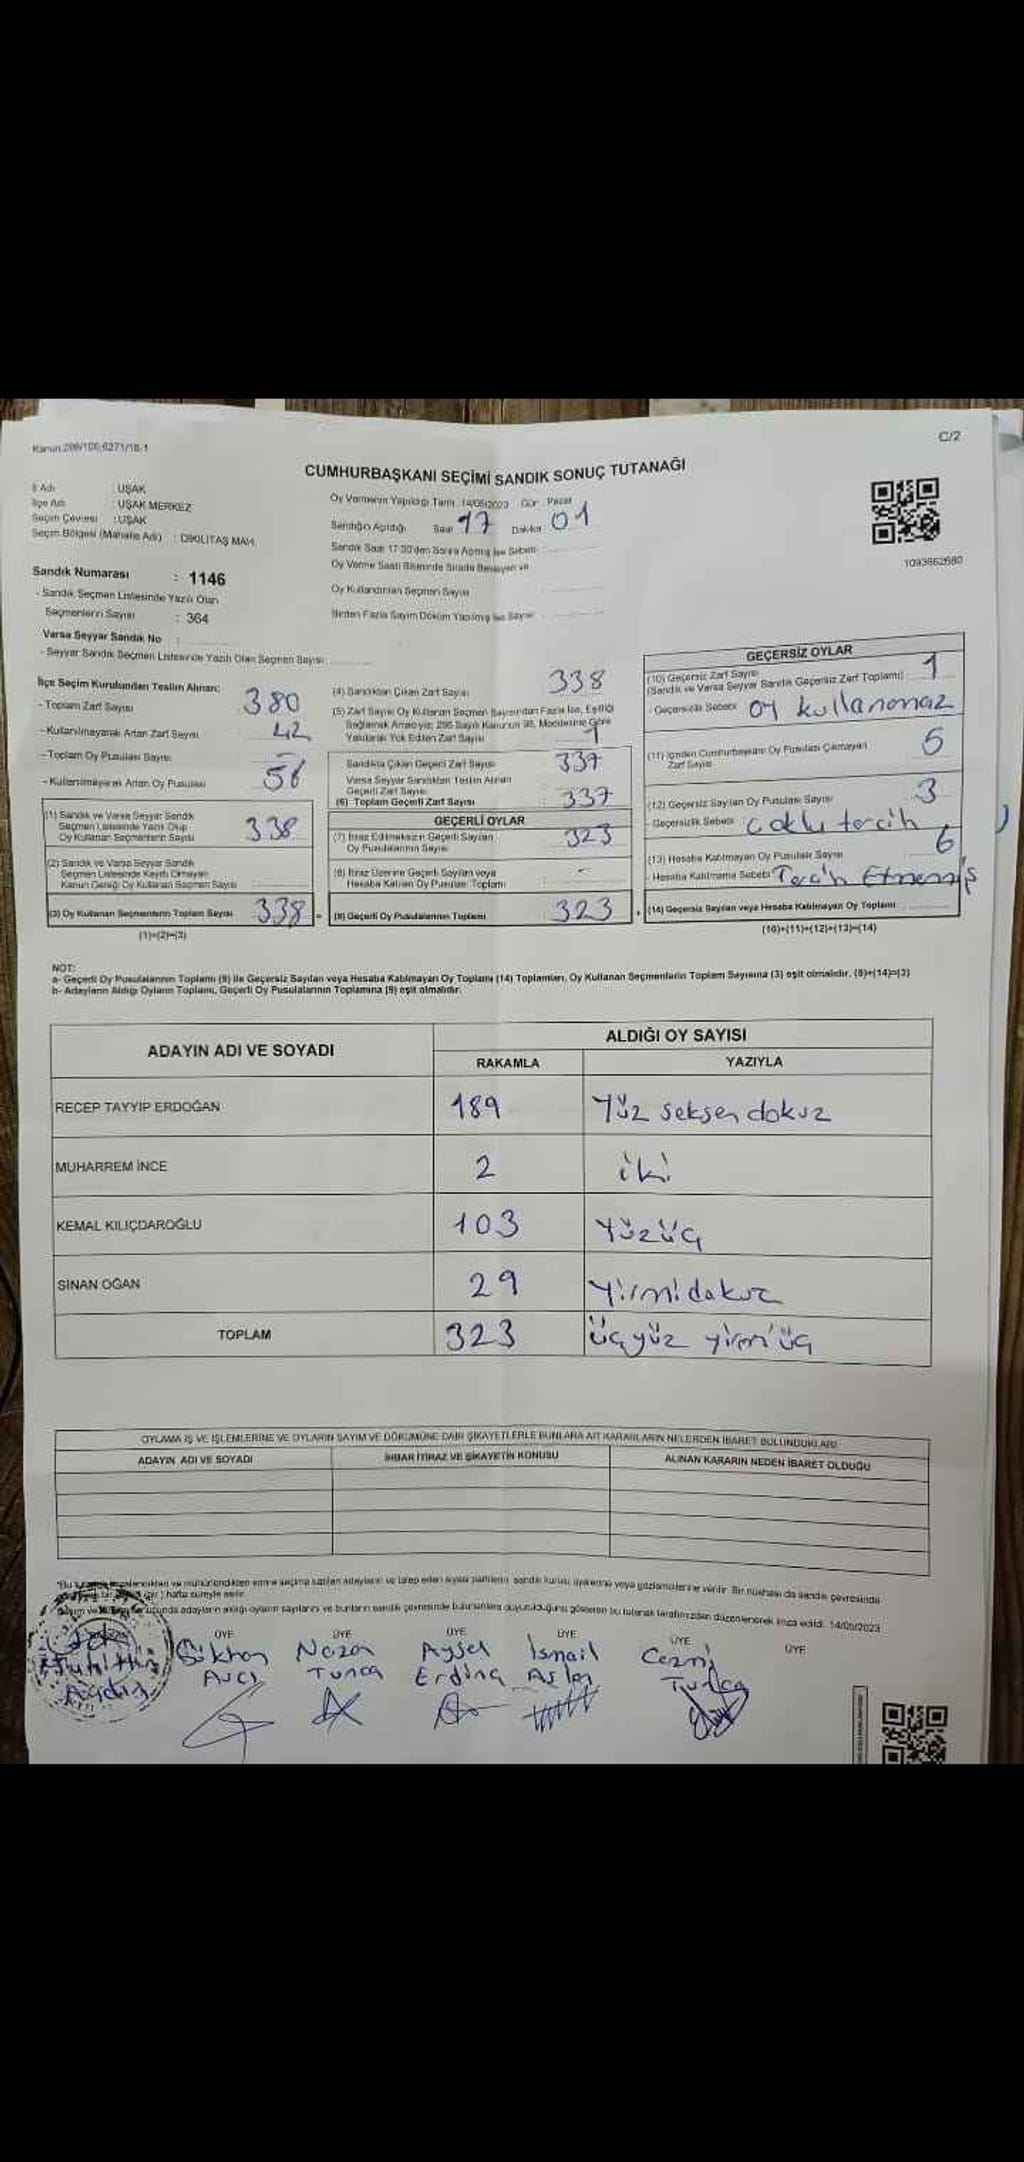 Kanun:298/106;6271/18-1
C/2
CUMHURBAŞKANI SEÇİMİ SANDIK SONUÇ TUTANAĞI
İl Adı : UŞAK
İlçe Adı : UŞAK MERKEZ
Seçim Çevresi : UŞAK
Seçim Bölgesi (Mahalle Adı) : DİKİLİTAŞ MAH.
Sandık Numarası : 1146
- Sandık Seçmen Listesinde Yazılı Olan
Seçmenlerin Sayısı : 364
Varsa Seyyar Sandık No :
- Seyyar Sandık Seçmen Listesinde Yazılı Olan Seçmen Sayısı:
Oy Vermenin Yapıldığı Tarih : 14/05/2023 Gün : Pazar
Sandığın Açıldığı Saat 17 Dakika 01
Sandık Saat 17.00'den Sonra Açılmış İse Sebebi
Oy Verme Saati Bitiminde Sırada Bekleyen ve
Oy Kullandırılan Seçmen Sayısı
Birden Fazla Sayım Döküm Yapılmış İse Sayısı
1093662680
İlçe Seçim Kurulundan Teslim Alınan;
- Toplam Zarf Sayısı 380
- Kullanılmayarak Artan Zarf Sayısı 42
- Toplam Oy Pusulası Sayısı -
- Kullanılmayarak Artan Oy Pusulası 56
(1) Sandık ve Varsa Seyyar Sandık
Seçmen Listesinde Yazılı Olup
Oy Kullanan Seçmenlerin Sayısı 338
(2) Sandık ve Varsa Seyyar Sandık
Seçmen Listesinde Kayıtlı Olmayan
Kanun Gereği Oy Kullanan Seçmen Sayısı
(3) Oy Kullanan Seçmenlerin Toplam Sayısı 338 =
(1)+(2)=(3)
(4) Sandıktan Çıkan Zarf Sayısı 338
(5) Zarf Sayısı Oy Kullanan Seçmen Sayısından Fazla İse, Eşitliği
Sağlamak Amacıyla; 298 Sayılı Kanunun 98. Maddesine Göre
Yakılarak Yok Edilen Zarf Sayısı 1
Sandıkta Çıkan Geçerli Zarf Sayısı 337
Varsa Seyyar Sandıktan Teslim Alınan
Geçerli Zarf Sayısı
(6) Toplam Geçerli Zarf Sayısı 337
GEÇERLİ OYLAR
(7) İtiraz Edilmeksizin Geçerli Sayılan
Oy Pusulalarının Sayısı 323
(8) İtiraz Üzerine Geçerli Sayılan veya
Hesaba Katılan Oy Pusulası Toplamı -
(9) Geçerli Oy Pusulalarının Toplamı 323 +
GEÇERSİZ OYLAR
(10) Geçersiz Zarf Sayısı
(Sandık ve Varsa Seyyar Sandık Geçersiz Zarf Toplamı) 1
- Geçersizlik Sebebi oy kullanamaz
(11) İçinden Cumhurbaşkanı Oy Pusulası Çıkmayan
Zarf Sayısı 5
(12) Geçersiz Sayılan Oy Pusulası Sayısı 3
- Geçersizlik Sebebi Çoklu tercih
(13) Hesaba Katılmayan Oy Pusulası Sayısı 6
- Hesaba Katılmama Sebebi Tercih Etmemiş
(14) Geçersiz Sayılan veya Hesaba Katılmayan Oy Toplamı
(10)+(11)+(12)+(13)=(14)
NOT:
a- Geçerli Oy Pusulalarının Toplamı (9) ile Geçersiz Sayılan veya Hesaba Katılmayan Oy Toplamı (14) Toplamları, Oy Kullanan Seçmenlerin Toplam Sayısına (3) eşit olmalıdır. (9)+(14)=(3)
b- Adayların Aldığı Oyların Toplamı, Geçerli Oy Pusulalarının Toplamına (9) eşit olmalıdır.
ADAYIN ADI VE SOYADI
ALDIĞI OY SAYISI
RAKAMLA YAZIYLA
RECEP TAYYİP ERDOĞAN 189 Yüz seksen dokuz
MUHARREM İNCE 2 iki
KEMAL KILIÇDAROĞLU 103 Yüzüç
SİNAN OĞAN 29 Yirmidokuz
TOPLAM 323 üçyüz yirmiüç
OYLAMA İŞ VE İŞLEMLERİNE VE OYLARIN SAYIM VE DÖKÜMÜNE DAİR ŞİKAYETLERLE BUNLARA AİT KARARLARIN NELERDEN İBARET BULUNDUKLARI
ADAYIN ADI VE SOYADI İHBAR İTİRAZ VE ŞİKAYETİN KONUSU ALINAN KARARIN NEDEN İBARET OLDUĞU
ve mühürlendikten sonra seçime katılan adayların ve talep eden siyasi partilerin sandık kurulu üyelerine veya gözlemcilerine verilir. Bir nüshası da sandık çevresinde
hafta süreyle asılır.
sonucunda adayların aldığı oyların sayılarını ve bunların sandık çevresinde bulunanlara duyurulduğunu gösteren bu tutanak tarafımızdan düzenlenerek imza edildi. 14/05/2023
ÜYE ÜYE ÜYE ÜYE ÜYE ÜYE
Gökhan Nazan Aysel İsmail Cezmi
Avcı Tunca Erdinç Aslan Tunca
Aydın